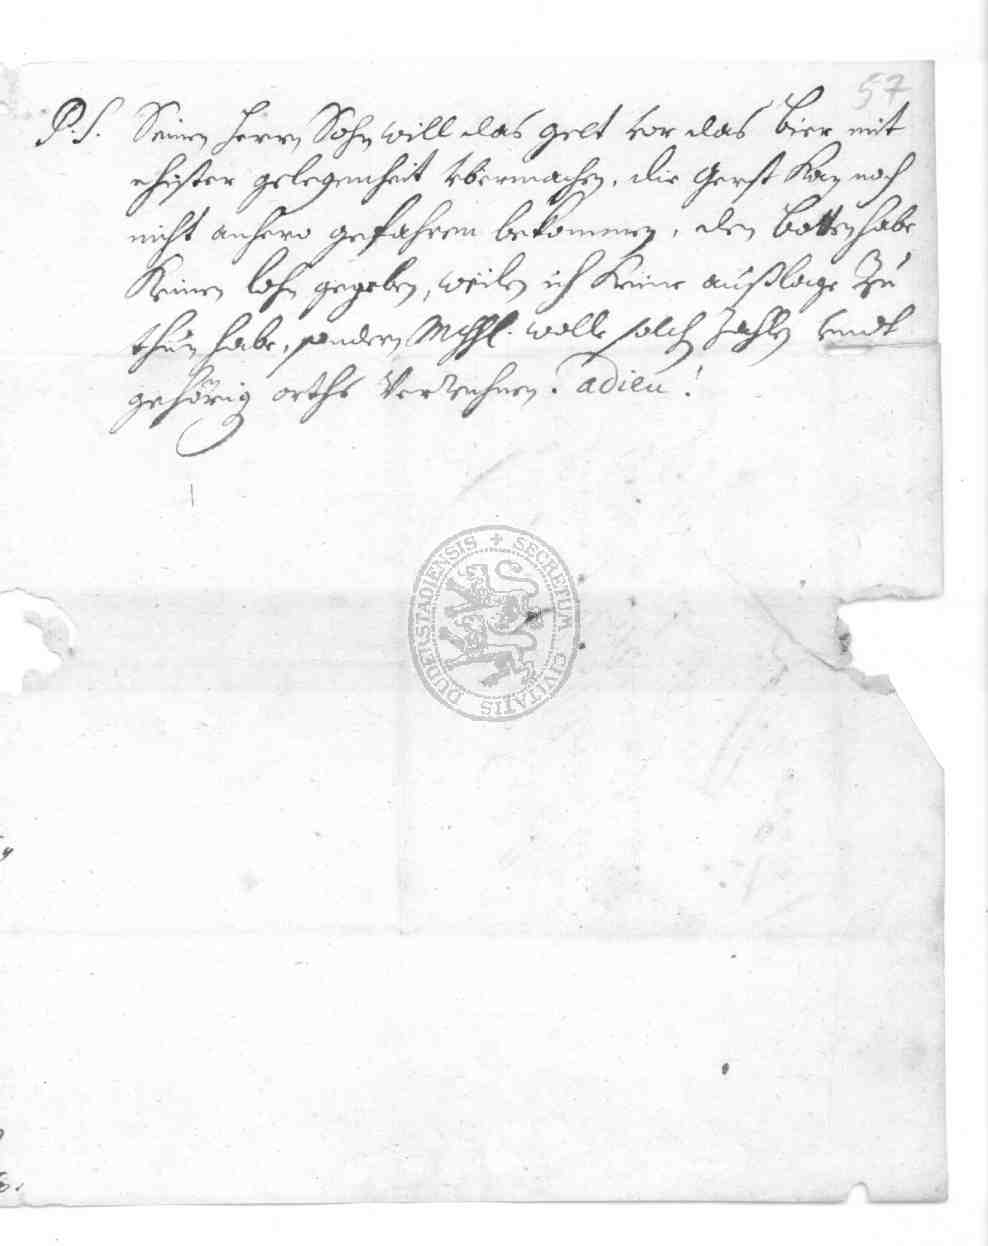 57
P.S. Seinen Herrn Sohn will das gelt vor das bier mit
ehister gelegenheit vbermachen, die Gerst kan noch
nicht anhero gefahren bekommen, den botten habe
keinen lohn gegeben, weilen ich keine außlage zu
thun habe, sondern Mhhl. wolle solch zahlen vndt
gehörig orths verzeichnen. adieu!
SECRETUM CIVITATIS DUDERSTADIENSIS